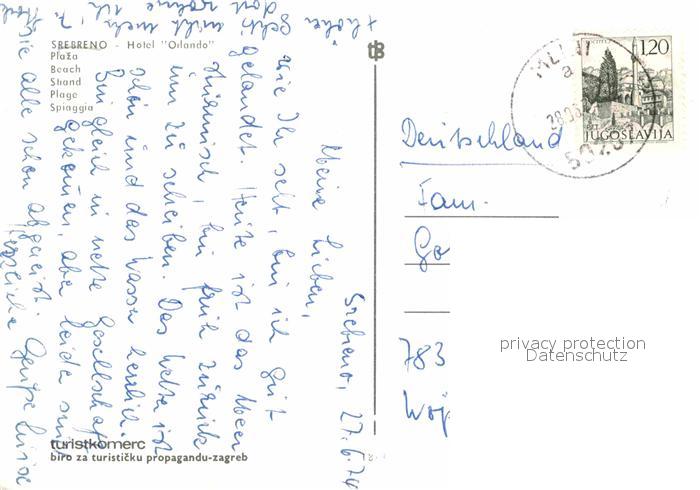 SREBRENO - Hotel "Orlando"
Plaža
Beach
Strand
Plage
Spiaggia
tB
1,20
JUGOSLAVIJA
a
Deutschland
Fam.
Ge
783
privacy protection
Datenschutz
Srebreno, 27.6.74
Meine Lieben,
wie Ihr seht, bin ich gut
gelandet. Heute ist das Meer
stürmisch, bin früh zurück
um zu schreiben. Das Wetter ist
schön und das Wasser herrlich.
Bin gleich in nette Gesellschaft
gekommen, aber leider sind
sie alle schon abgereist.
Herzliche Grüße Luise
turistkomerc
biro za turističku propagandu-zagreb